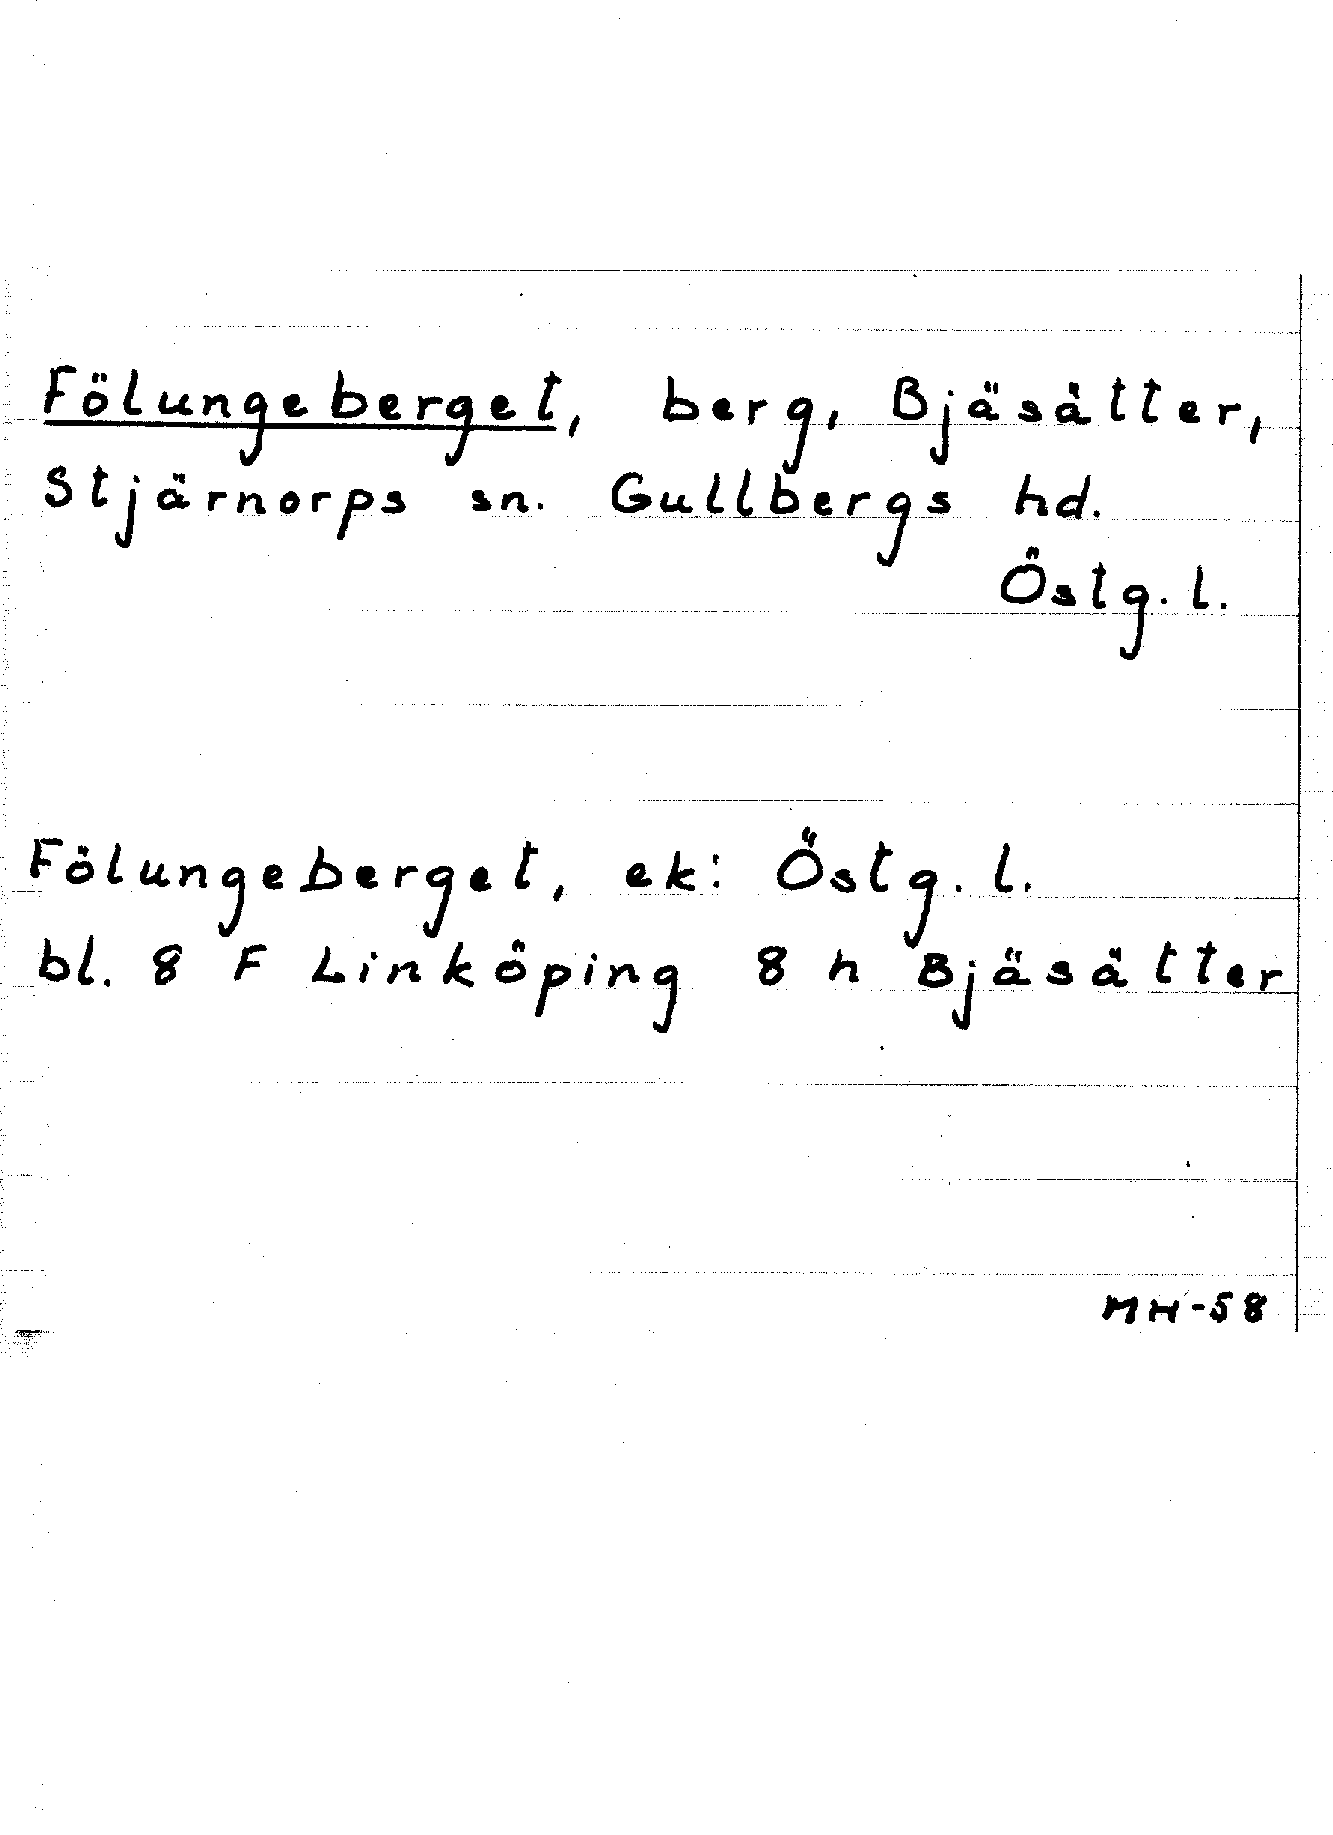 Fölungeberget, berg, Bjäsätter,
Stjärnorps sn. Gullbergs hd.
Östg. l.
Fölungeberget, ek: Östg. l.
bl. 8 F Linköping 8 h Bjäsätter
MH-58